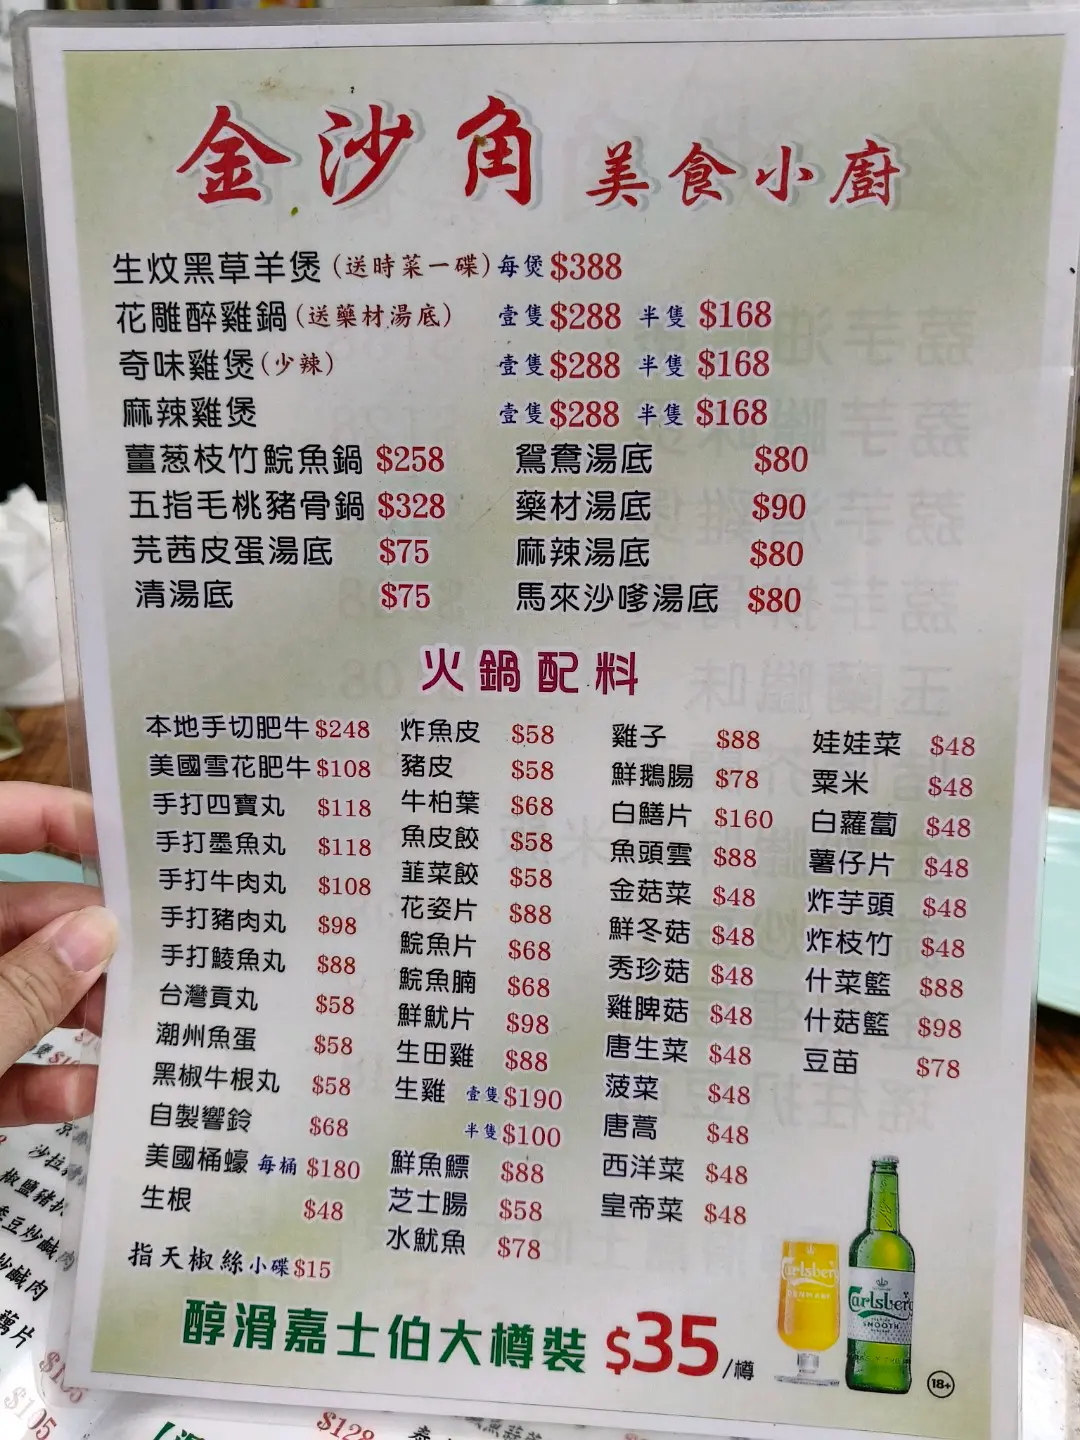 金沙角 美食小廚
生炆黑草羊煲(送時菜一碟)每煲$388
花雕醉雞鍋(送藥材湯底) 壹隻$288 半隻$168
奇味雞煲(少辣) 壹隻$288 半隻$168
麻辣雞煲 壹隻$288 半隻$168
薑葱枝竹鯇魚鍋 $258 鴛鴦湯底 $80
五指毛桃豬骨鍋 $328 藥材湯底 $90
芫茜皮蛋湯底 $75 麻辣湯底 $80
清湯底 $75 馬來沙嗲湯底 $80
火鍋配料
本地手切肥牛 $248
美國雪花肥牛 $108
手打四寶丸 $118
手打墨魚丸 $118
手打牛肉丸 $108
手打豬肉丸 $98
手打鯪魚丸 $88
台灣貢丸 $58
潮州魚蛋 $58
黑椒牛根丸 $58
自製響鈴 $68
美國桶蠔 每桶 $180
生根 $48
指天椒絲小碟$15
炸魚皮 $58
豬皮 $58
牛柏葉 $68
魚皮餃 $58
韮菜餃 $58
花姿片 $88
鯇魚片 $68
鯇魚腩 $68
鮮魷片 $98
生田雞 $88
生雞 壹隻$190
半隻$100
鮮魚鰾 $88
芝士腸 $58
水魷魚 $78
雞子 $88
鮮鵝腸 $78
白鱔片 $160
魚頭雲 $88
金菇菜 $48
鮮冬菇 $48
秀珍菇 $48
雞脾菇 $48
唐生菜 $48
菠菜 $48
唐蒿 $48
西洋菜 $48
皇帝菜 $48
娃娃菜 $48
粟米 $48
白蘿蔔 $48
薯仔片 $48
炸芋頭 $48
炸枝竹 $48
什菜籃 $88
什菇籃 $98
豆苗 $78
醇滑嘉士伯大樽裝 $35/樽
Carlsberg
DENMARK
Carlsberg
SMOOTH
18+
沙拉
椒鹽豬扒
豆炒鹹肉
炒鹹肉
藕片
$105
$105
$128